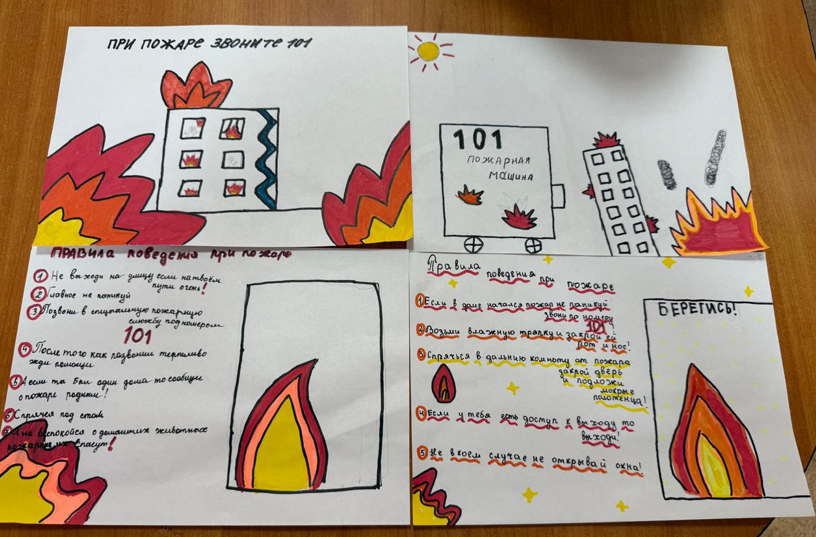 ПРИ ПОЖАРЕ ЗВОНИТЕ 101
101
ПОЖАРНАЯ
МАШИНА
ПРАВИЛА поведения при пожаре
1 Не выходи на улицу если на твоём
пути огонь!
2 Главное не паникуй
3 Позвони в специальную пожарную
службу под номером
101
4 После того как позвонил терпеливо
жди помощи
5 А если ты был один дома то сообщи
о пожаре родит!
6 Спрячся под стол
не беспокойся о домашних животных
пожарные их спасут!
Правила
поведения при пожаре
1 Если в доме начался пожар не паникуй
звони по номеру
101
2 Возьми влажную тряпку и закрой ей
рот и нос!
3 Спрячься в дальнию комноту от пожара
закрой дверь
и подложи
мокрые
полотенца!
4 Если у тебя есть доступ к выходу то
выходи!
5 Не в коем случае не открывай окна!
БЕРЕГИСЬ!